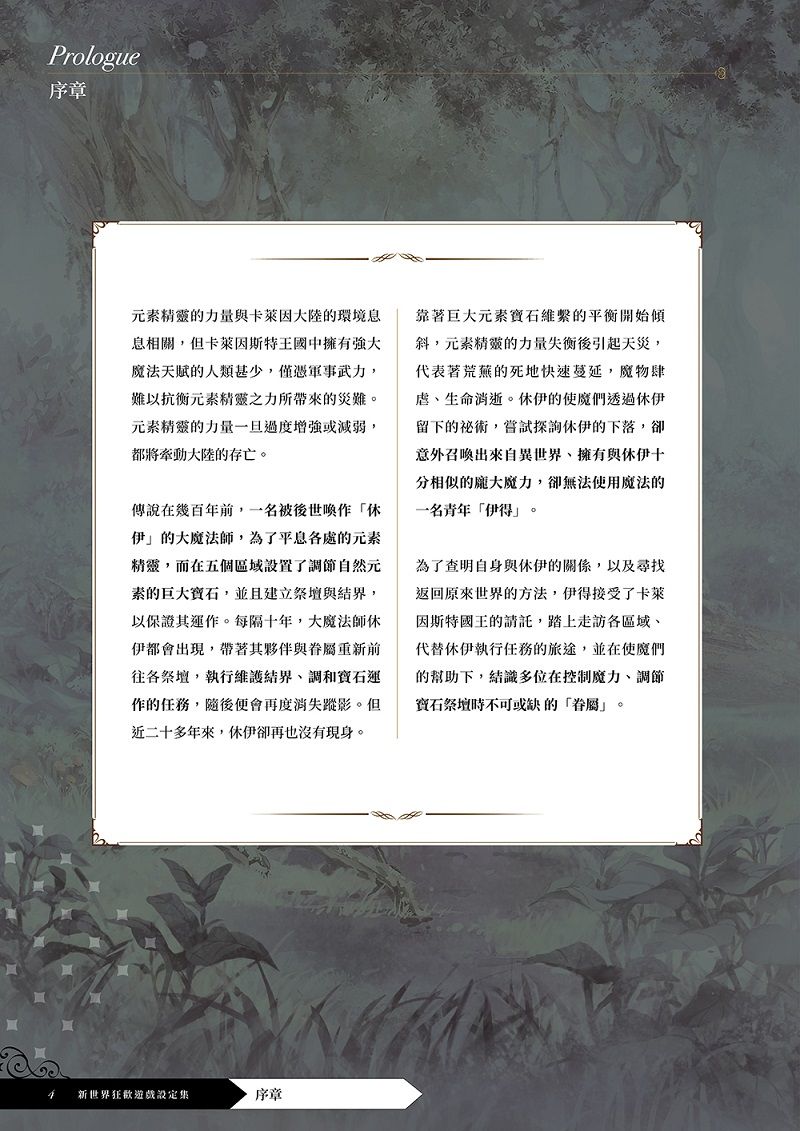 Prologue
序章
元素精靈的力量與卡萊因大陸的環境息
息相關，但卡萊因斯特王國中擁有強大
魔法天賦的人類甚少，僅憑軍事武力，
難以抗衡元素精靈之力所帶來的災難。
元素精靈的力量一旦過度增強或減弱，
都將牽動大陸的存亡。
傳說在幾百年前，一名被後世喚作「休
伊」的大魔法師，為了平息各處的元素
精靈，而在五個區域設置了調節自然元
素的巨大寶石，並且建立祭壇與結界，
以保證其運作。每隔十年，大魔法師休
伊都會出現，帶著其夥伴與眷屬重新前
往各祭壇，執行維護結界、調和寶石運
作的任務，隨後便會再度消失蹤影。但
近二十多年來，休伊卻再也沒有現身。
靠著巨大元素寶石維繫的平衡開始傾
斜，元素精靈的力量失衡後引起天災，
代表著荒蕪的死地快速蔓延，魔物肆
虐、生命消逝。休伊的使魔們透過休伊
留下的祕術，嘗試探詢休伊的下落，卻
意外召喚出來自異世界、擁有與休伊十
分相似的龐大魔力，卻無法使用魔法的
一名青年「伊得」。
為了查明自身與休伊的關係，以及尋找
返回原來世界的方法，伊得接受了卡萊
因斯特國王的請託，踏上走訪各區域、
代替休伊執行任務的旅途，並在使魔們
的幫助下，結識多位在控制魔力、調節
寶石祭壇時不可或缺 的「眷屬」。
4 新世界狂歡遊戲設定集 序章